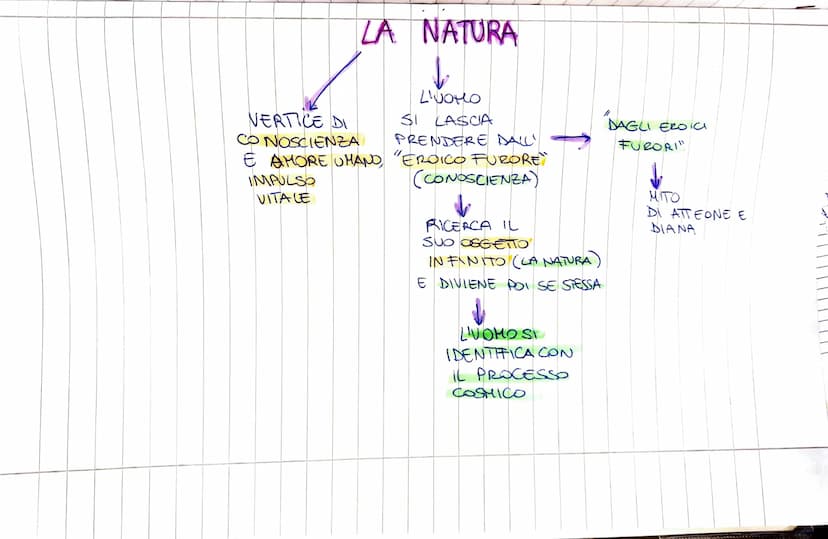 LA NATURA
VERTICE DI
CONOSCIENZA
E AMORE UMANO,
IMPULSO
VITALE
L'UOMO
SI LASCIA
PRENDERE DALL'
"EROICO FURORE"
(CONOSCIENZA)
"DAGLI EROICI
FURORI"
MITO
DI ATTEONE E
DIANA
RICERCA IL
SUO OGGETTO
INFINITO (LA NATURA)
E DIVIENE POI SE STESSA
L'UOMO SI
IDENTIFICA CON
IL PROCESSO
COSMICO